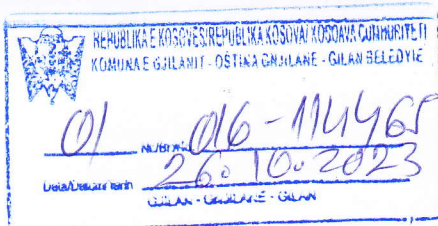 REPUBLIKA E KOSOVËS/REPUBLIKA KOSOVA/ KOSOVA CUMHURİYETİ
KOMUNA E GJILANIT - OPŠTINA GNJILANE - GILAN BELEDIYE
01 016-114465
26.10.2023
GJILAN - GNJILANE - GILAN